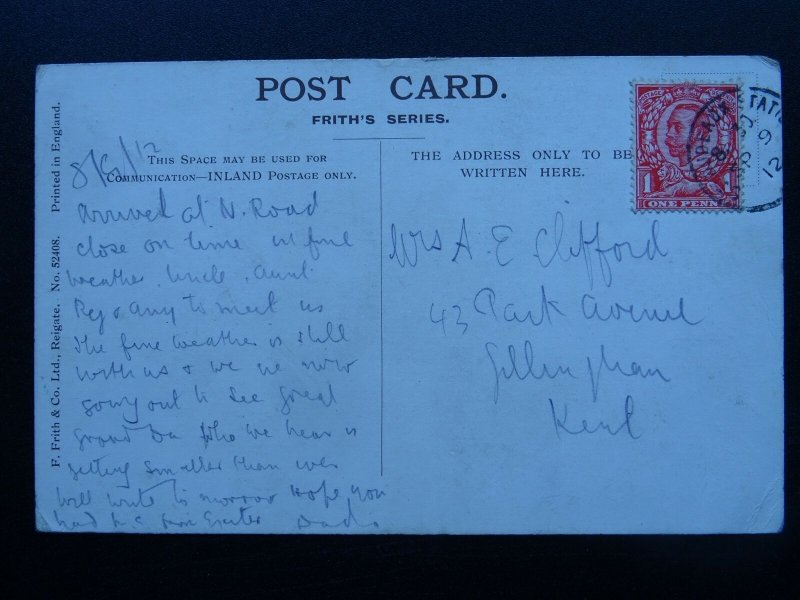 POST CARD.
FRITH'S SERIES.
THIS SPACE MAY BE USED FOR
COMMUNICATION—INLAND POSTAGE ONLY.
THE ADDRESS ONLY TO BE
WRITTEN HERE.
F. Frith & Co. Ltd., Reigate. No. 52408. Printed in England.
POSTAGE
1 1
ONE PENNY
STATIO
12
arrived at N. Road
close on time in fine
weather. Uncle, Aunt
Reg & Amy to meet us
the fine weather is still
with us & we are now
going out to see great
Grand Da who we hear is
getting smaller than ever
will write to morrow hope you
had from Exeter Dad.
Mrs A. E Clifford
43 Park Avenue
Gillingham
Kent